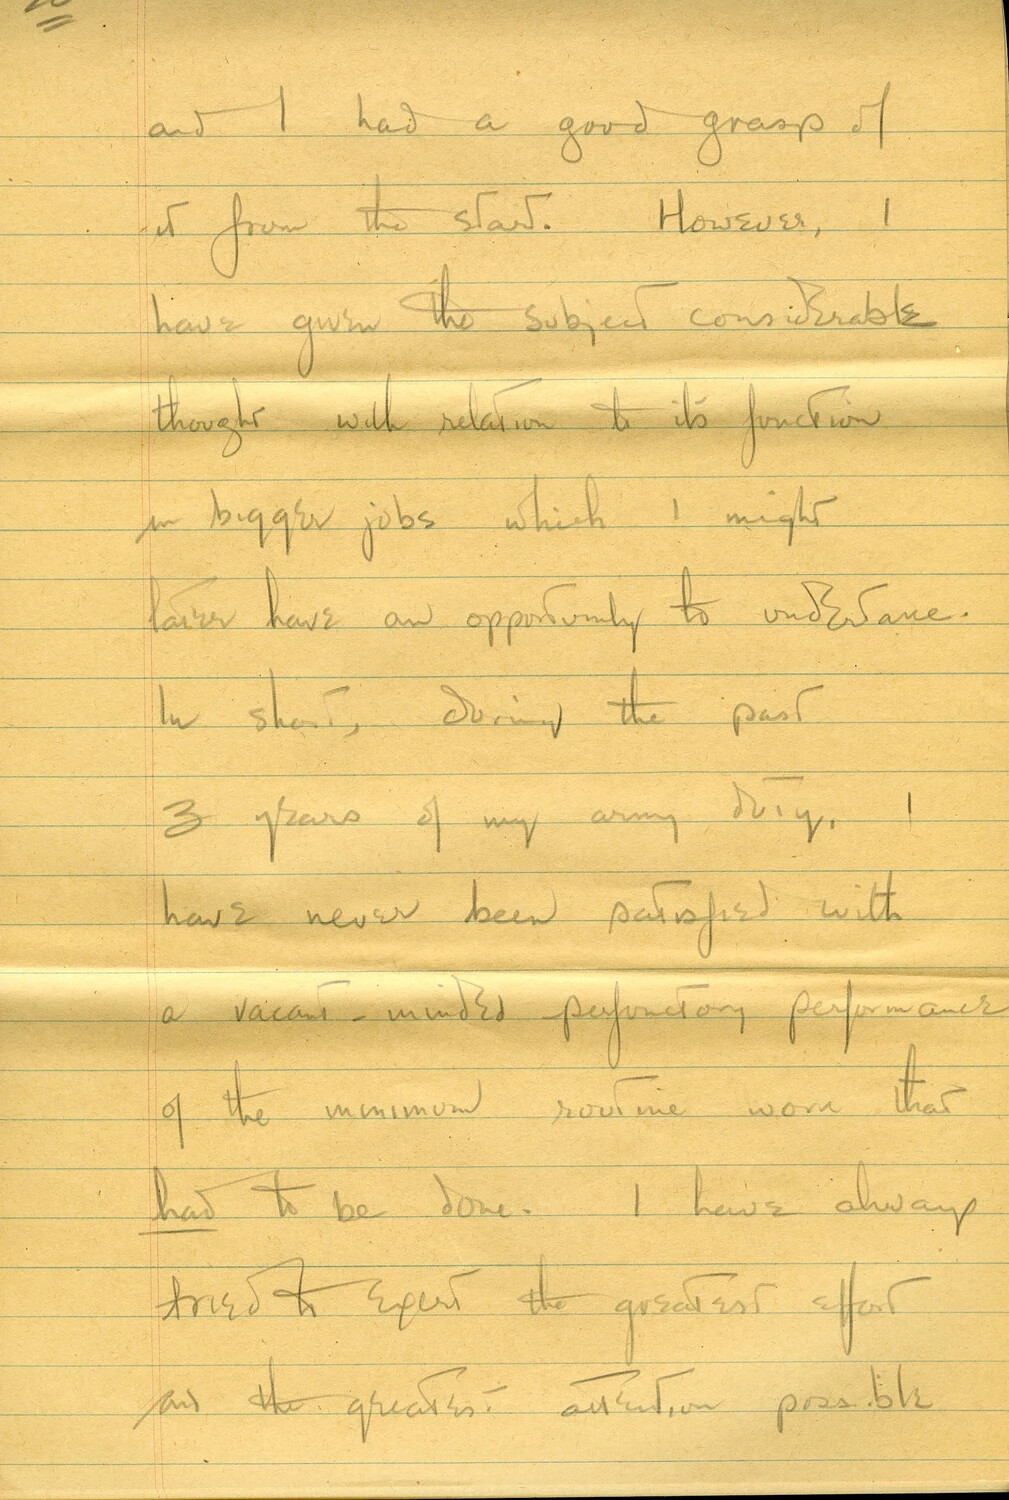 and I had a good grasp of
it from the start. However, I
have given the subject considerable
thought with relation to its function
in bigger jobs which I might
later have an opportunity to undertake.
In short, during the past
3 years of my army duty, I
have never been satisfied with
a vacant-minded perfunctory performance
of the minimum routine work that
had to be done. I have always
tried to expert the greatest effort
and the greatest attention possible